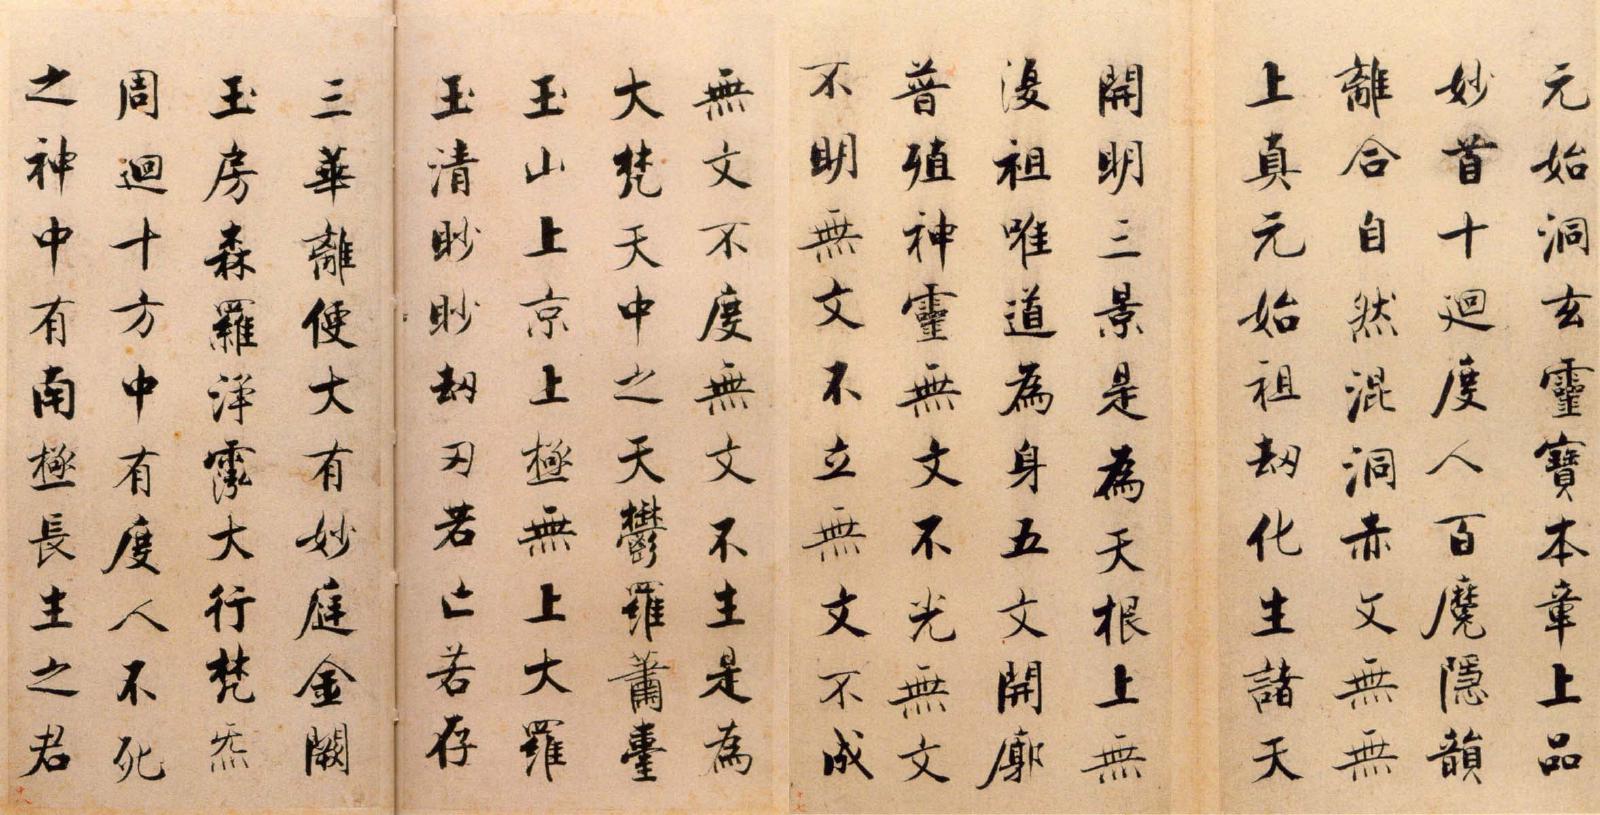 元始洞玄靈寶本章上品
妙首十迴度人百魔隱韻
離合自然混洞赤文無無
上真元始祖劫化生諸天
開明三景是為天根上無
復祖唯道為身五文開廓
普殖神靈無文不光無文
不明無文不立無文不成
無文不度無文不生是為
大梵天中之天鬱羅蕭臺
玉山上京上極無上大羅
玉清眇眇劫刃若亡若存
三華離便大有妙庭金闕
玉房森羅淨霐大行梵炁
周迴十方中有度人不死
之神中有南極長生之君